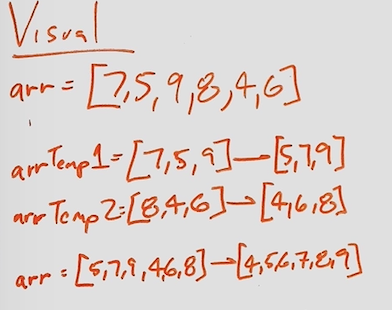 Visual
arr = [7,5,9,8,4,6]
arrTemp1=[7,5,9]→[5,7,9]
arrTemp2=[8,4,6]→[4,6,8]
arr = [5,7,9,4,6,8]→[4,5,6,7,8,9]